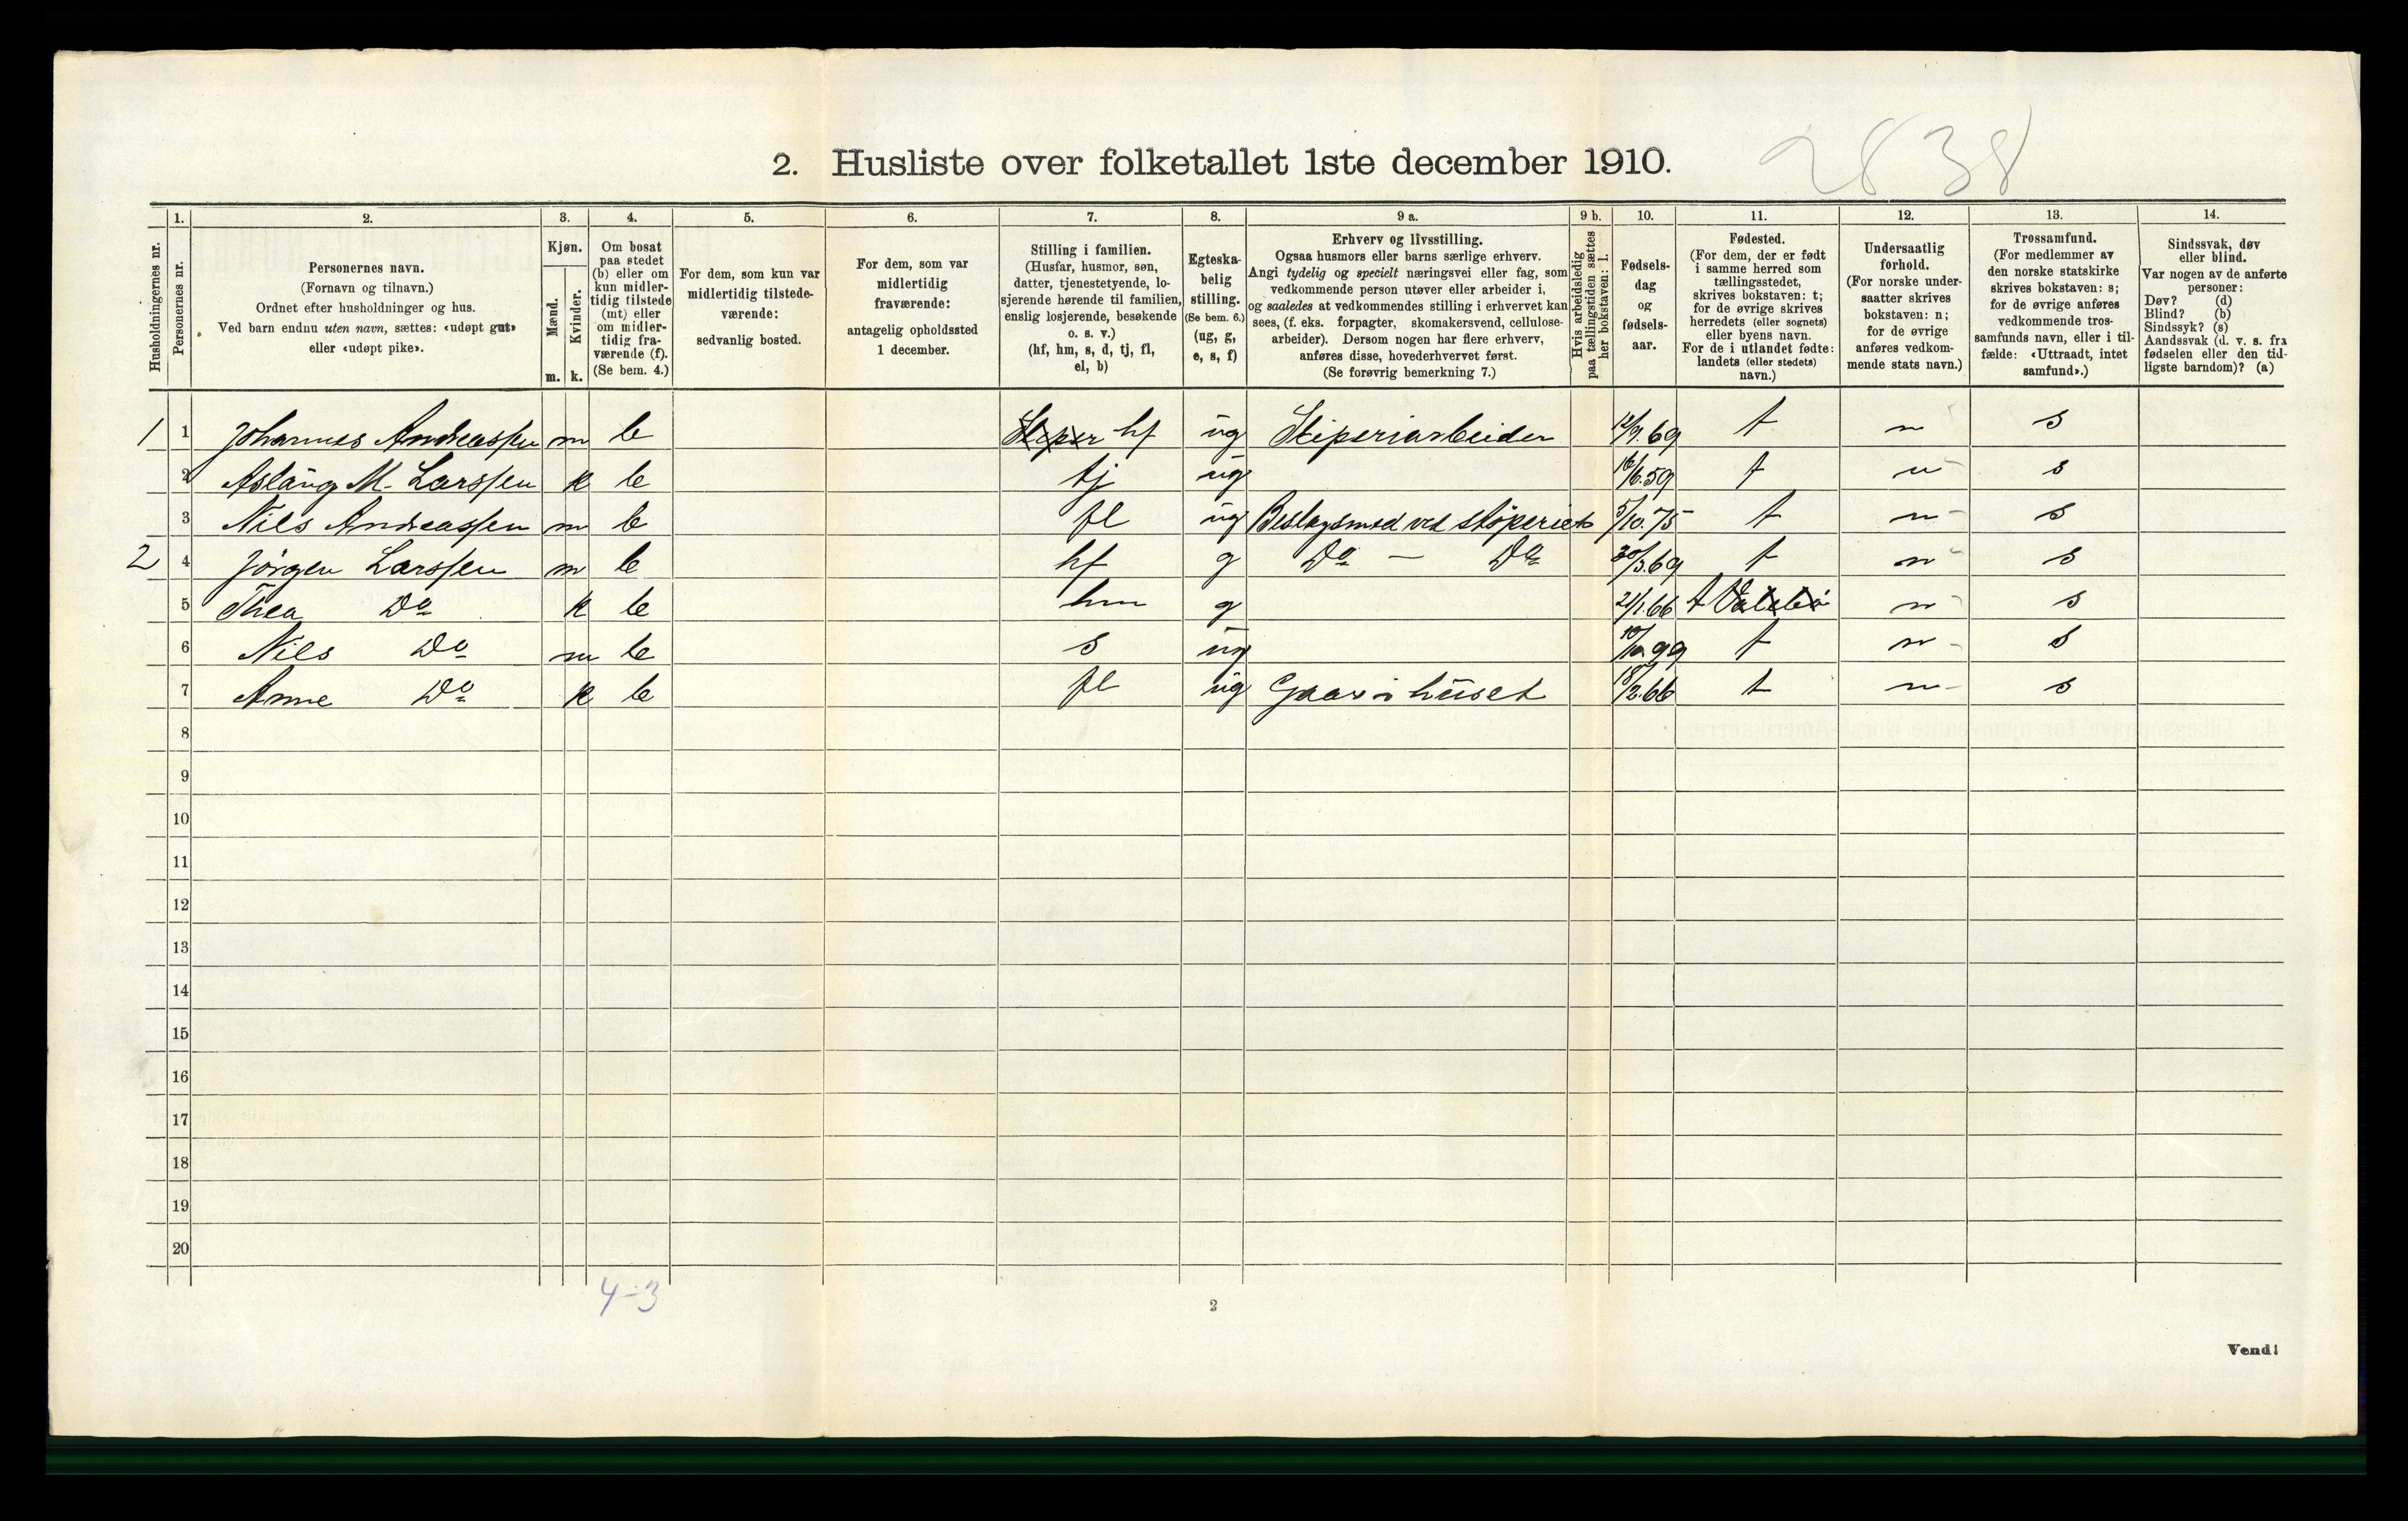 2838
2. Husliste over folketallet 1ste december 1910.
Husholdningernes nr.
1. Personernes nr.
2. Personernes navn. (Fornavn og tilnavn.) Ordnet efter husholdninger og hus. Ved barn endnu uten navn, sættes: «udøpt gut» eller «udøpt pike».
3. Kjøn. Mænd. m. Kvinder. k.
4. Om bosat paa stedet (b) eller om kun midlertidig tilstede (mt) eller om midlertidig fraværende (f). (Se bem. 4.)
5. For dem, som kun var midlertidig tilstedeværende: sedvanlig bosted.
6. For dem, som var midlertidig fraværende: antagelig opholdssted 1 december.
7. Stilling i familien. (Husfar, husmor, søn, datter, tjenestetyende, losjerende hørende til familien, enslig losjerende, besøkende o. s. v.) (hf, hm, s, d, tj, fl, el, b)
8. Egteskabelig stilling. (Se bem. 6.) (ug, g, e, s, f)
9 a. Erhverv og livsstilling. Ogsaa husmors eller barns særlige erhverv. Angi tydelig og specielt næringsvei eller fag, som vedkommende person utøver eller arbeider i, og saaledes at vedkommendes stilling i erhvervet kan sees, (f. eks. forpagter, skomakersvend, cellulosearbeider). Dersom nogen har flere erhverv, anføres disse, hovederhvervet først. (Se forøvrig bemerkning 7.)
9 b. Hvis arbeidsledig paa tællingstiden sættes her bokstaven: l.
10. Fødselsdag og fødselsaar.
11. Fødested. (For dem, der er født i samme herred som tællingsstedet, skrives bokstaven: t; for de øvrige skrives herredets (eller sognets) eller byens navn. For de i utlandet fødte: landets (eller stedets) navn.)
12. Undersaatlig forhold. (For norske undersaatter skrives bokstaven: n; for de øvrige anføres vedkommende stats navn.)
13. Trossamfund. (For medlemmer av den norske statskirke skrives bokstaven: s; for de øvrige anføres vedkommende trossamfunds navn, eller i tilfælde: «Uttraadt, intet samfund».)
14. Sindssvak, døv eller blind. Var nogen av de anførte personer: Døv? (d) Blind? (b) Sindssyk? (s) Aandssvak (d. v. s. fra fødselen eller den tidligste barndom)? (a)
1 1 Johannes Andreassen m b hf ug Stiperiarbeider 12/9.69 t n s
2 Aslaug M. Larssen k b tj ug 16/6.59 t n s
3 Nils Andreassen m b fl ug Beslagsmed ved støperiet 5/10.75 t n s
2 4 Jörgen Larssen m b hf g Do - Do 30/3.69 t n s
5 Thea Do k b hm g 21/1.66 t n s
6 Nils Do m b s ug 10/10.99 t n s
7 Anne Do k b fl ug Gaar i huset 18/2.66 t n s
8
9
10
11
12
13
14
15
16
17
18
19
20
4-3
2
Vend!